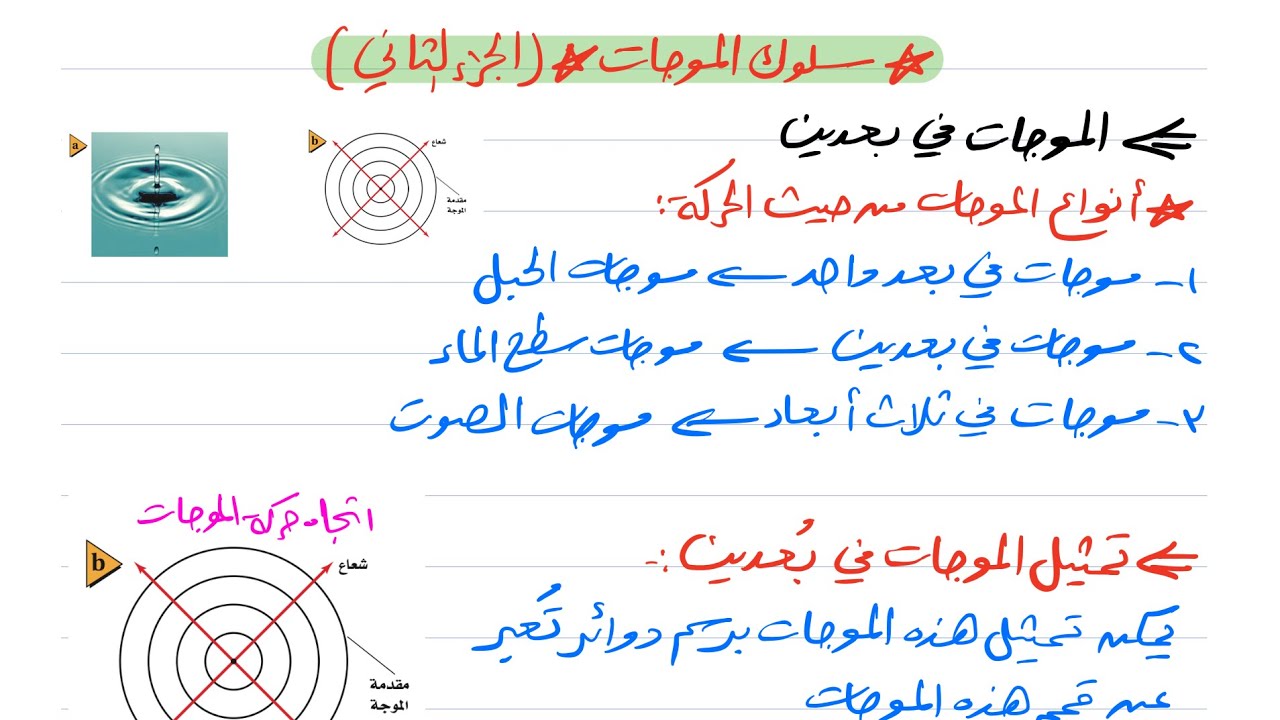 * سلوك الموجات * (الجزء الثاني)
الموجات في بعدين
a
b
شعاع
مقدمة
الموجة
* أنواع الموجات من حيث الحركة:
١- موجات في بعد واحد ← موجات الحبل
٢- موجات في بعدين ← موجات سطح الماء
٣- موجات في ثلاث أبعاد ← موجات الصوت
اتجاه حركة الموجات
b
شعاع
مقدمة
الموجة
تمثيل الموجات في بُعدين :-
يمكن تمثيل هذه الموجات برسم دوائر تُعبر
عن قمم هذه الموجات